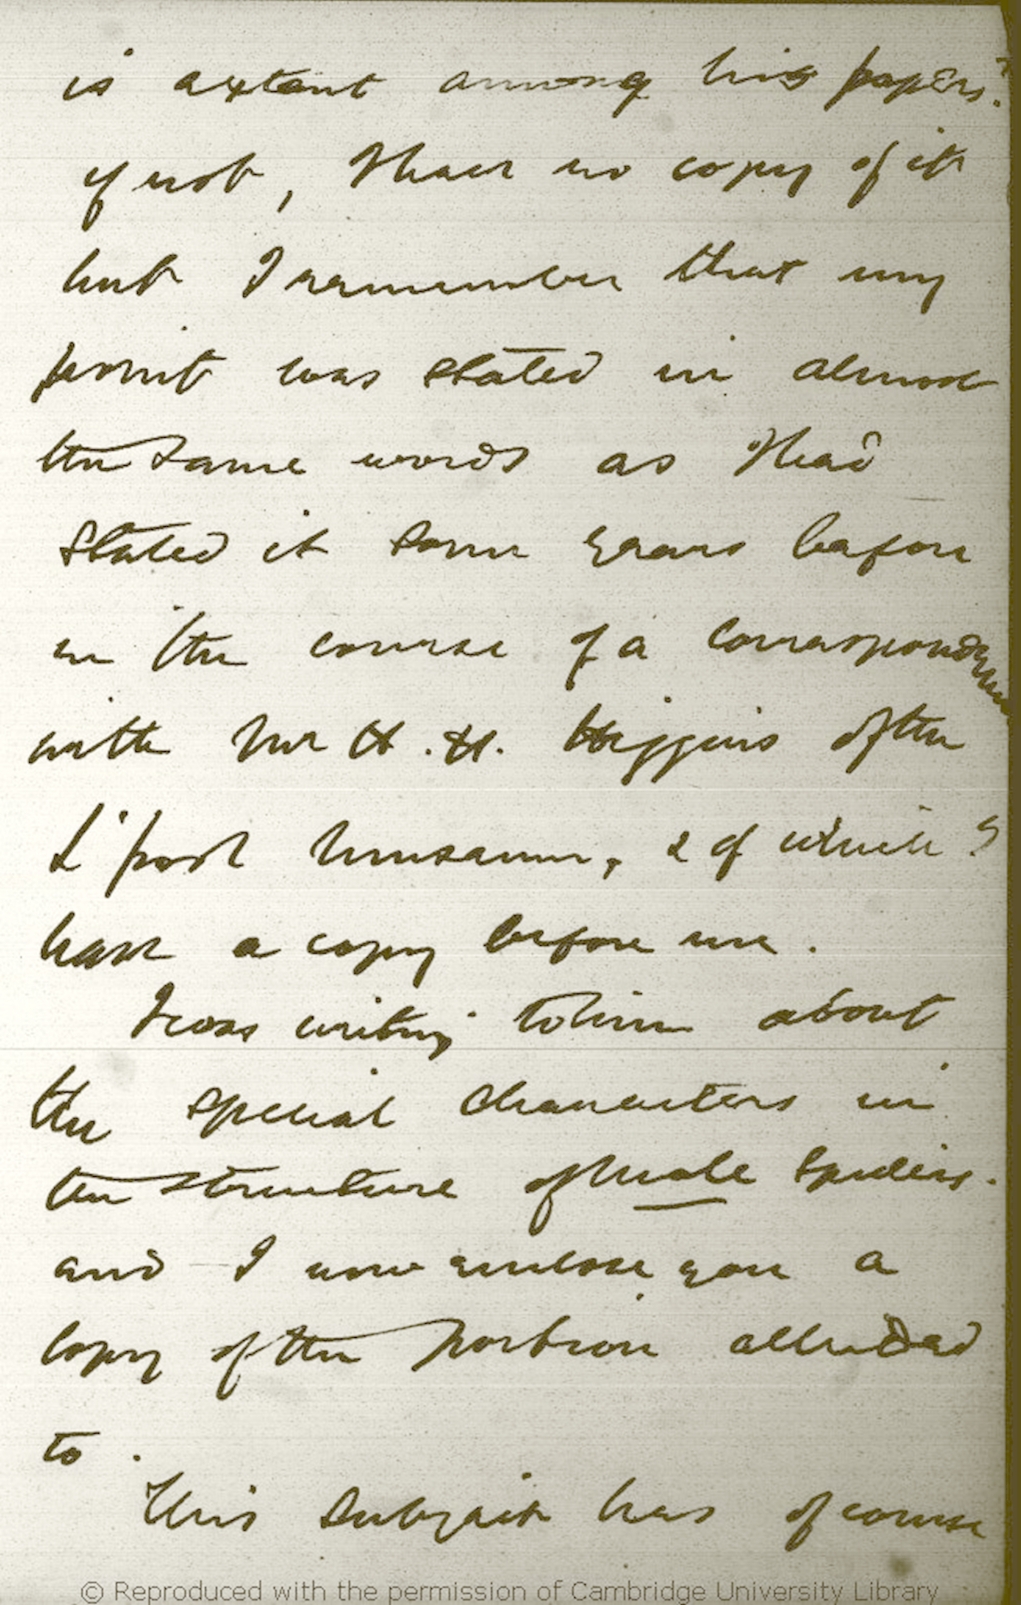 is extant among his papers?
If not, I have no copy of it
but I remember that my
point was stated in almost
the same words as I had
stated it some years before
in the course of a correspondence
with Mr H. H. Higgins of the
L'pool Museum, & of which I
have a copy before me.
I was writing to him about
the special characters in
the structure of male spiders.
and I now enclose you a
copy of the portion alluded
to.
This subject has of course
© Reproduced with the permission of Cambridge University Library